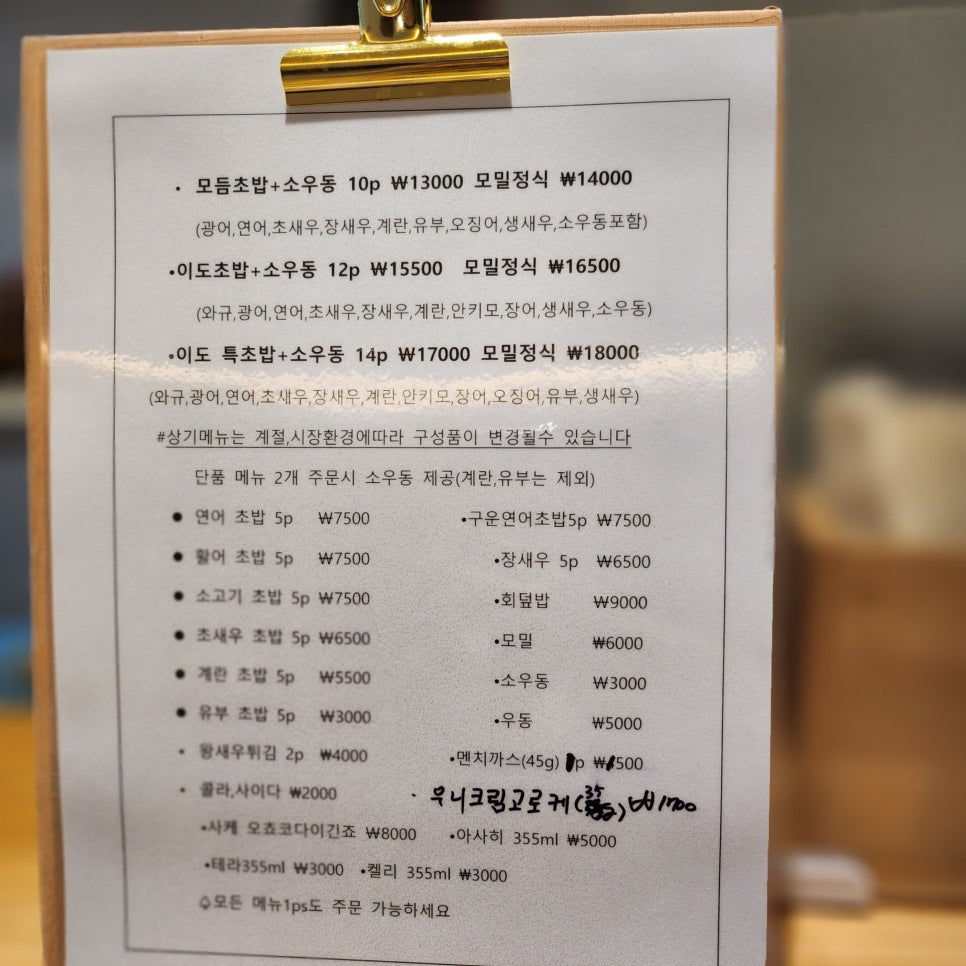 • 모듬초밥+소우동 10p ₩13000 모밀정식 ₩14000
(광어,연어,초새우,장새우,계란,유부,오징어,생새우,소우동포함)
•이도초밥+소우동 12p ₩15500 모밀정식 ₩16500
(와규,광어,연어,초새우,장새우,계란,안키모,장어,생새우,소우동)
•이도 특초밥+소우동 14p ₩17000 모밀정식 ₩18000
(와규,광어,연어,초새우,장새우,계란,안키모,장어,오징어,유부,생새우)
#상기메뉴는 계절,시장환경에따라 구성품이 변경될수 있습니다
단품 메뉴 2개 주문시 소우동 제공(계란,유부는 제외)
● 연어 초밥 5p ₩7500 •구운연어초밥5p ₩7500
● 활어 초밥 5p ₩7500 •장새우 5p ₩6500
● 소고기 초밥 5p ₩7500 •회덮밥 ₩9000
● 초새우 초밥 5p ₩6500 •모밀 ₩6000
● 계란 초밥 5p ₩5500 •소우동 ₩3000
● 유부 초밥 5p ₩3000 •우동 ₩5000
• 왕새우튀김 2p ₩4000 •멘치까스(45g) 1p ₩1500
• 콜라,사이다 ₩2000 · 우니크림고로케(35) ₩1700
•사케 오쵸코다이긴죠 ₩8000 •아사히 355ml ₩5000
•테라355ml ₩3000 •켈리 355ml ₩3000
♤모든 메뉴1ps도 주문 가능하세요